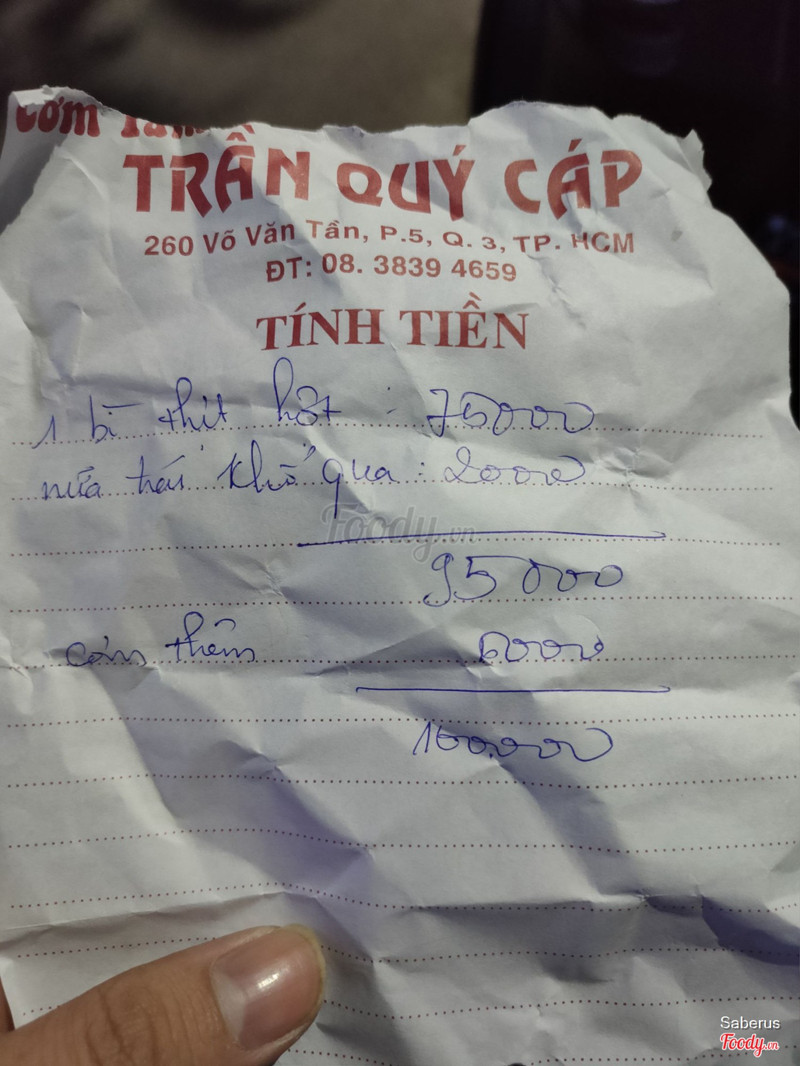 Cơm Tấm
TRẦN QUÝ CÁP
260 Võ Văn Tần, P.5, Q. 3, TP. HCM
ĐT: 08. 3839 4659
TÍNH TIỀN
1 bì thịt hột : 75000
nửa trái khổ qua : 20000
95000
cơm thêm 5000
100.000
Foody.vn
Saberus
Foody.vn